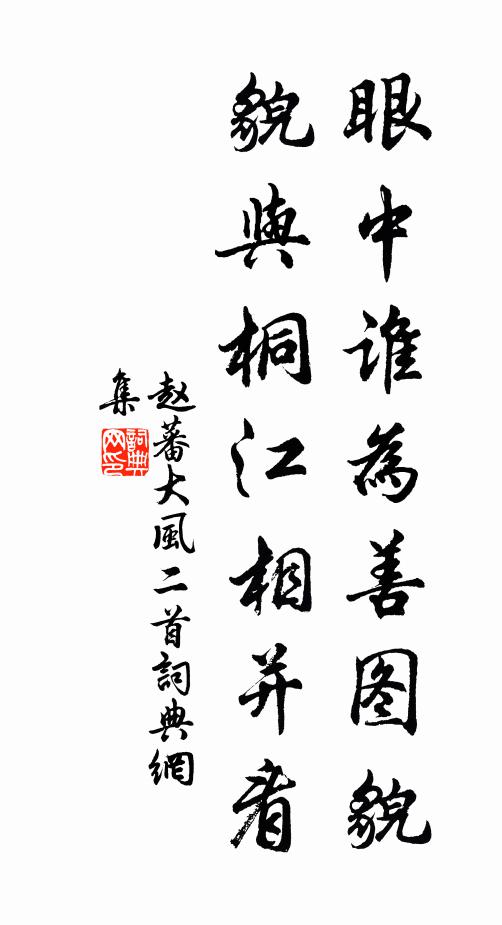 眼中谁為善图貌
貌與桐江相并看
赵蕃大風二首詞典網
集
詞典
网印